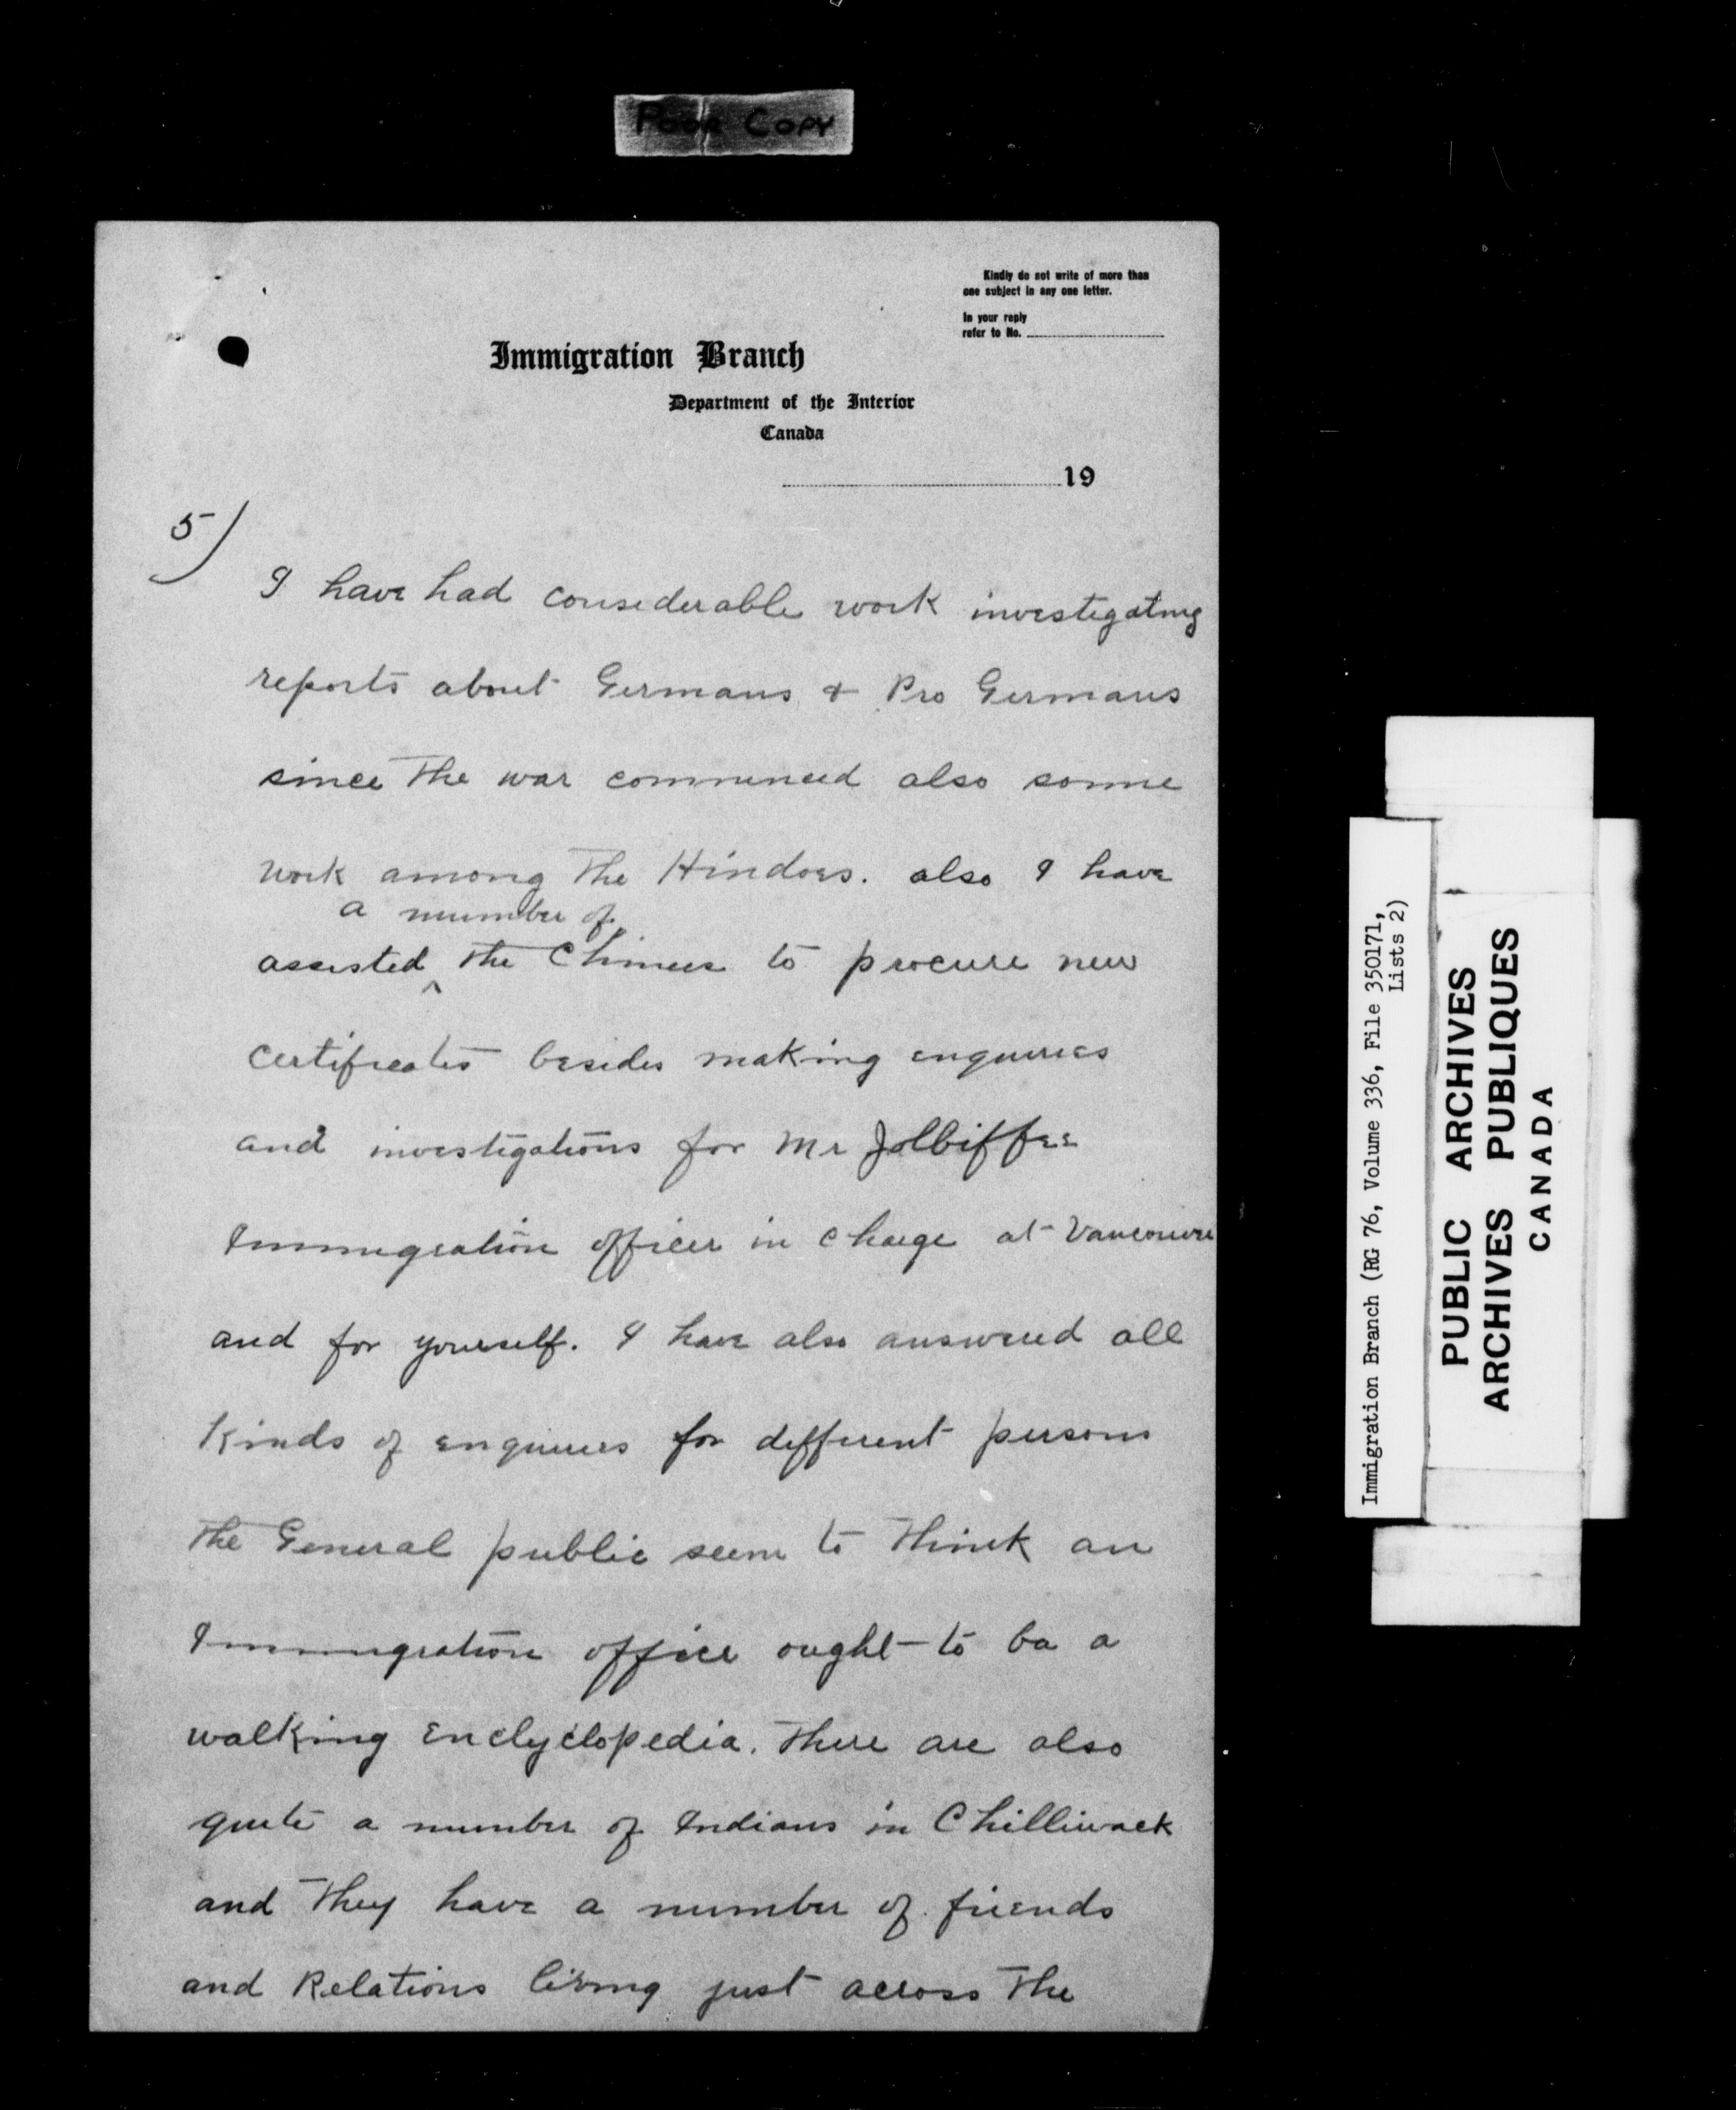 Poor Copy
Kindly do not write of more than
one subject in any one letter.
In your reply
refer to No.
Immigration Branch
Department of the Interior
Canada
19
5)
I have had considerable work investigating
reports about Germans & Pro Germans
since the war commenced also some
work among the Hindoes. also I have
a number of
assisted ^ the Chinese to procure new
certificates besides making enquiries
and investigations for Mr Jolbiffee
Immigration officer in charge at Vancouver
and for yourself. I have also answered all
kinds of enquiries for different persons
the General public seem to think an
Immigration office ought to be a
walking Enclyclopedia. There are also
quite a number of Indians in Chilliwack
and they have a number of friends
and Relations living just across the
Immigration Branch (RG 76, Volume 336, File 350171,
Lists 2)
PUBLIC ARCHIVES
ARCHIVES PUBLIQUES
CANADA